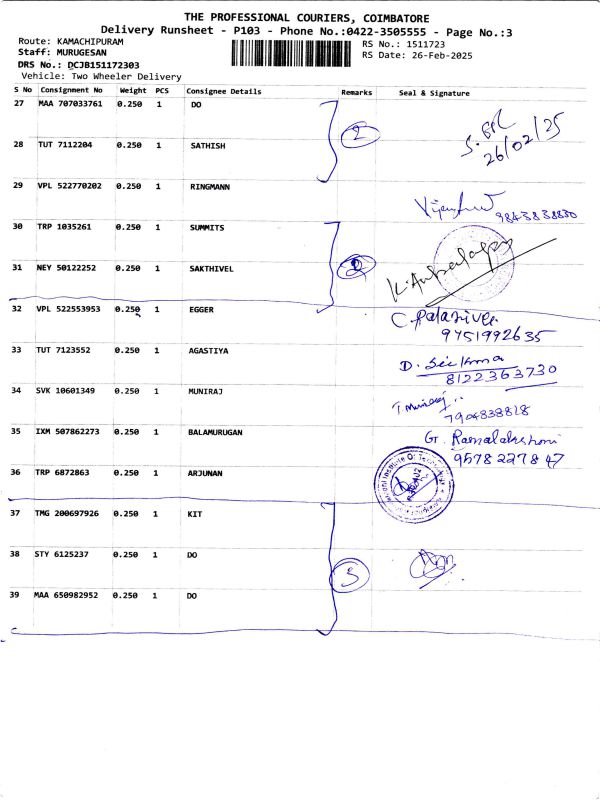 THE PROFESSIONAL COURIERS, COIMBATORE
Delivery Runsheet - P103 - Phone No.:0422-3505555 - Page No.:3
Route: KAMACHIPURAM
RS No.: 1511723
Staff: MURUGESAN
RS Date: 26-Feb-2025
DRS No.: DCJB151172303
Vehicle: Two Wheeler Delivery
S No Consignment No Weight PCS Consignee Details Remarks Seal & Signature
27 MAA 707033761 0.250 1 DO
2
26/02/25
28 TUT 7112204 0.250 1 SATHISH
29 VPL 522770202 0.250 1 RINGMANN
9843838880
30 TRP 1035261 0.250 1 SUMMITS
31 NEY 50122252 0.250 1 SAKTHIVEL
32 VPL 522553953 0.250 1 EGGER
9751992635
33 TUT 7123552 0.250 1 AGASTIYA
8122363730
34 SVK 10601349 0.250 1 MUNIRAJ
7904838828
35 IXM 507862273 0.250 1 BALAMURUGAN
9578227847
36 TRP 6872863 0.250 1 ARJUNAN
37 TMG 200697926 0.250 1 KIT
38 STY 6125237 0.250 1 DO
3
39 MAA 650982952 0.250 1 DO